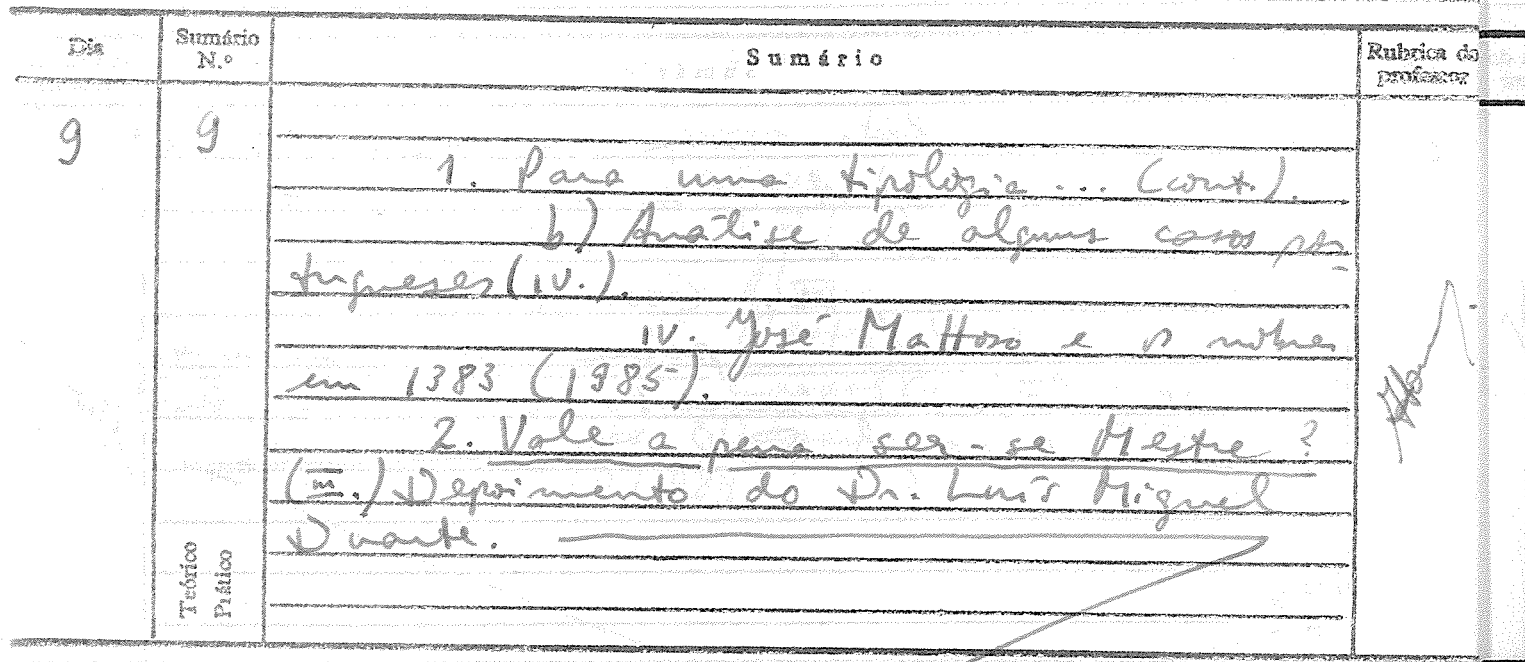 Dia
Sumário
N.º
Sumário
Rubrica do
professor
9
9
1. Para uma tipologia ... (cont.).
b) Análise de alguns casos por
tugueses (IV.).
IV. José Mattoso e os nobres
em 1383 (1985).
2. Vale a pena ser-se Mestre?
(III.) Depoimento do Dr. Luís Miguel
Duarte.
Teórico
Prático